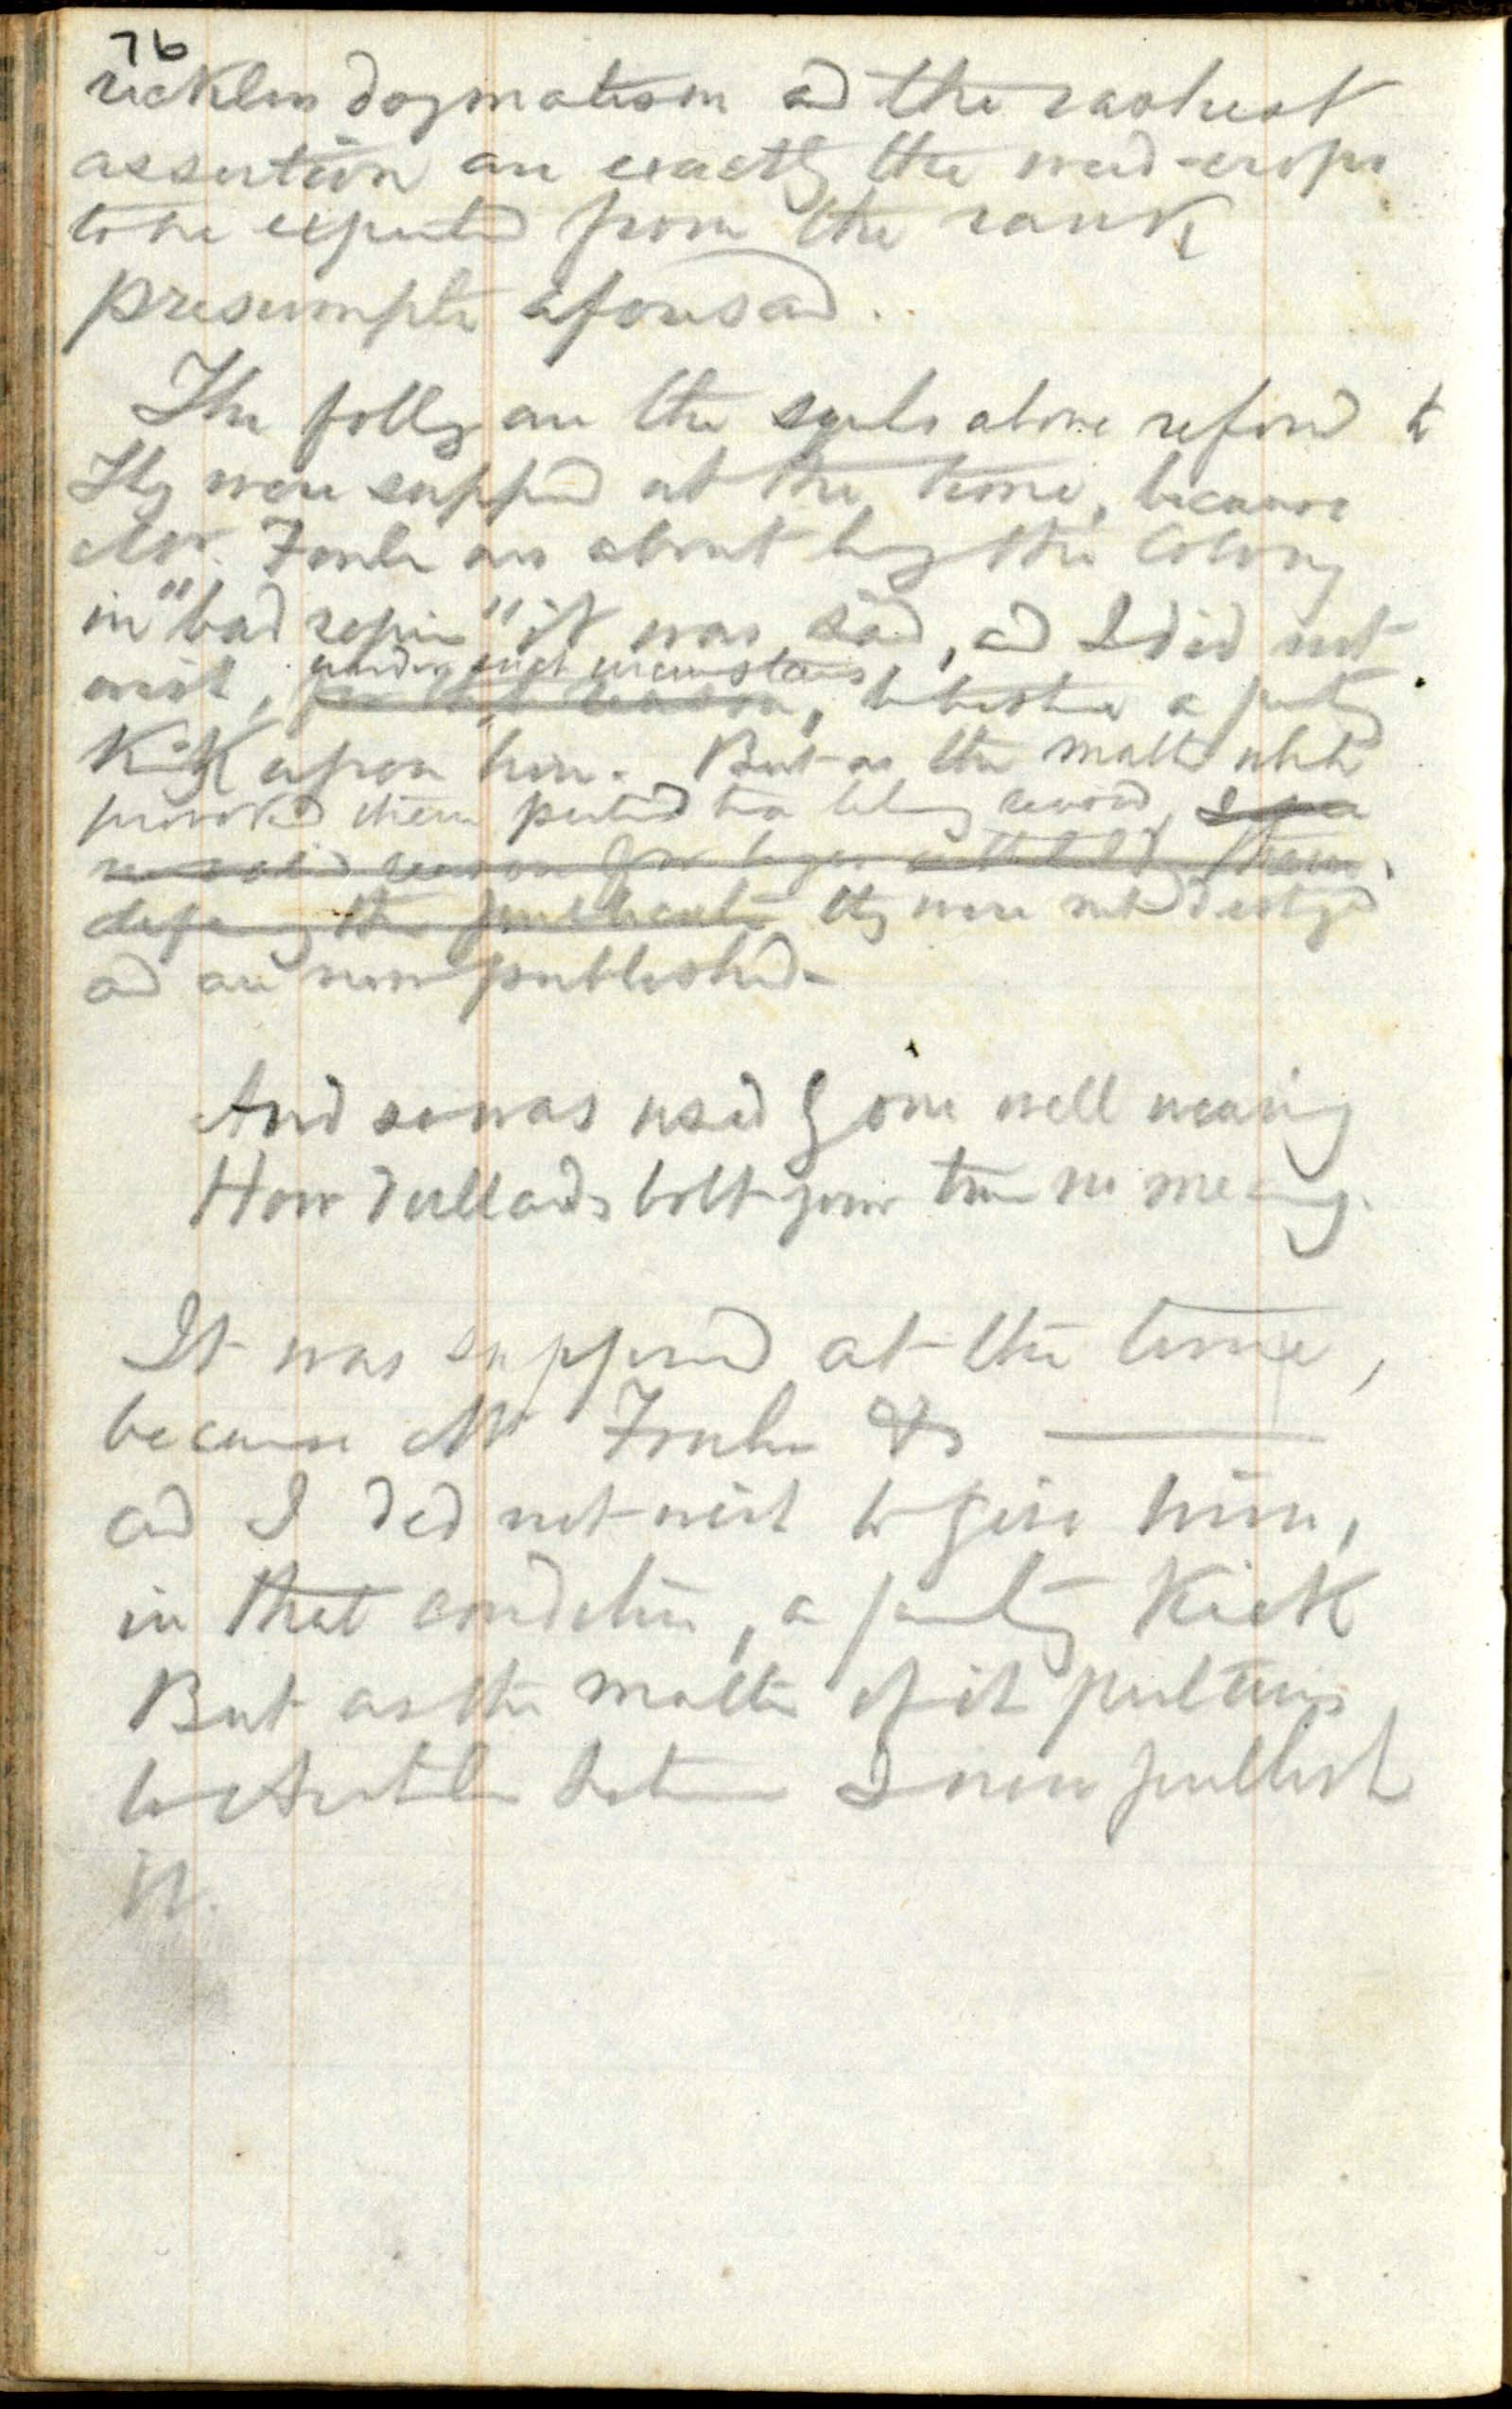 76
reckless dogmatism and the rashest
assertion are exactly the weed-crops
to be expected from the rank
presumptn aforesaid.
The follg are the squibs above referred to
They were suppd at the time, because
Mr. Fowler was about lvg the Colony
in "bad repair" it was said, and I did not
wish, under such circumstances
for that reason, to bestow a partg
Kick upon him. But as the matter which
provoked them pertd to a record, I see
no valid reason for longer withhldg them,
the publicatn they were not destroyed
and are now published.
And so was used of one well meaning
How dullards bolt your no meang.
It was suppressed at the time,
because Mr Fowler &c
and I did not wish to give him,
in that condition, a partg Kick
But as the matter of it pertains
to I now publish
it.